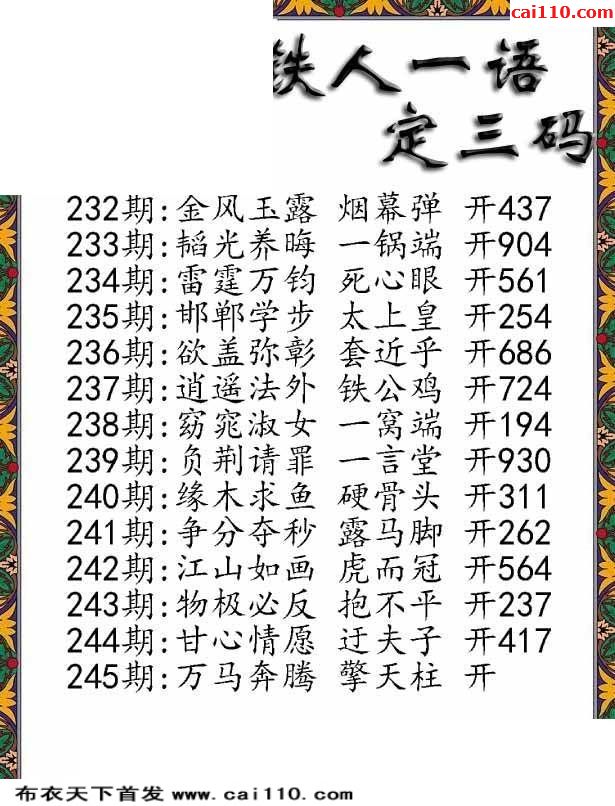 cai110.com
铁人一语
定三码
232期:金风玉露 烟幕弹 开437
233期:韬光养晦 一锅端 开904
234期:雷霆万钧 死心眼 开561
235期:邯郸学步 太上皇 开254
236期:欲盖弥彰 套近乎 开686
237期:逍遥法外 铁公鸡 开724
238期:窈窕淑女 一窝端 开194
239期:负荆请罪 一言堂 开930
240期:缘木求鱼 硬骨头 开311
241期:争分夺秒 露马脚 开262
242期:江山如画 虎而冠 开564
243期:物极必反 抱不平 开237
244期:甘心情愿 迂夫子 开417
245期:万马奔腾 擎天柱 开
布衣天下首发 www.cai110.com